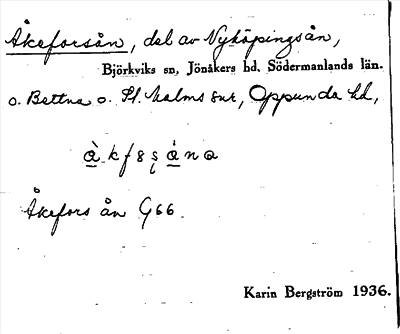 Åkeforsån, del av Nyköpingsån,
Björkviks sn, Jönåkers hd, Södermanlands län.
o. Bettna o. St. Malms snr, Oppunda hd,
Åkefors ån G66.
Karin Bergström 1936.